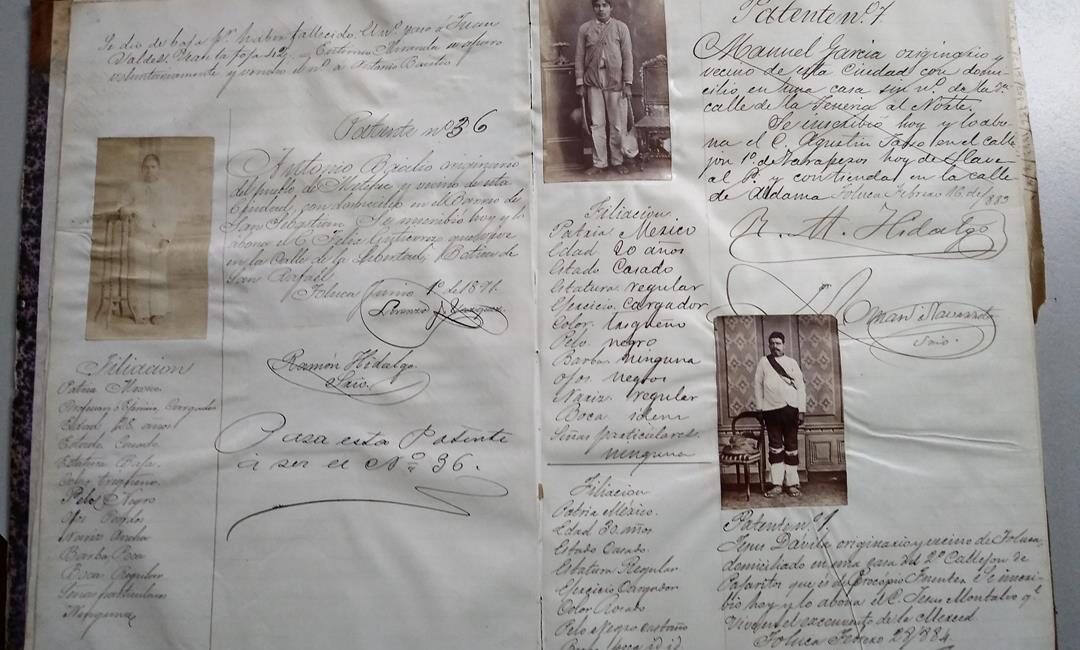 Se dio de baja pr. haber fallecido. El nº. pasó á Juan
Valdes. Vease la foja 42. Victoriano Miranda se separo
voluntariamente y vendio el nº. a Antonio Basilio
Patente nº 36
Antonio Basilio originario
del pueblo de y vecino de esta
Ciudad, con domicilio en el Barrio de
San Sebastian. Se inscribió hoy y lo
abona el C. Felix Gutierrez que vive
en la Calle de la Libertad, de
San Rafael.
Toluca Junio 1º. de 1871.
Ramón Hidalgo
Srio.
Filiacion
Patria Mexico.
Profesion ó Ejercicio Cargador
Edad 28 años
Estado Casado
Estatura Baja.
Color Trigueño.
Pelo Negro
Ojos Pardos
Nariz Ancha
Barba Poca
Boca Regular
Señas particulares
Ninguna
Pasa esta Patente
á ser el Nº 36.
Patente nº. 7
Manuel Garcia originario y
vecino de esta Ciudad con domi-
cilio en una casa sin nº. de la 2ª.
calle de la Teneria al Norte.
Se inscribió hoy y lo abo-
na el C. Agustin en el calle
jon 1º. de hoy de
al P. y con tienda en la calle
de Aldama Toluca Febrero 16. de 1883
R. M. Hidalgo
Navarrete
Srio.
Filiacion.
Patria Mexico
Edad 20 años
Estado Casado
Estatura regular
Ejercicio cargador
Color trigueño
Pelo negro
Barba ninguna
Ojos negros
Nariz regular
Boca idem
Señas particulares.
ninguna
Filiacion
Patria México.
Edad 30 años
Estado Casado.
Estatura Regular
Ejercicio Cargador
Color Rosado
Pelo Negro castaño
Patente nº. 1.
Jesus Dávila originario y vecino de Toluca,
domiciliado en una casa del 2º Callejon de
Pajaritos que es de Procopio Fuentes. Se inscri-
bió hoy y lo abona el C. Jesus Montalvo qe.
vive en el exconvento de la Merced.
Toluca Febrero 28/884.